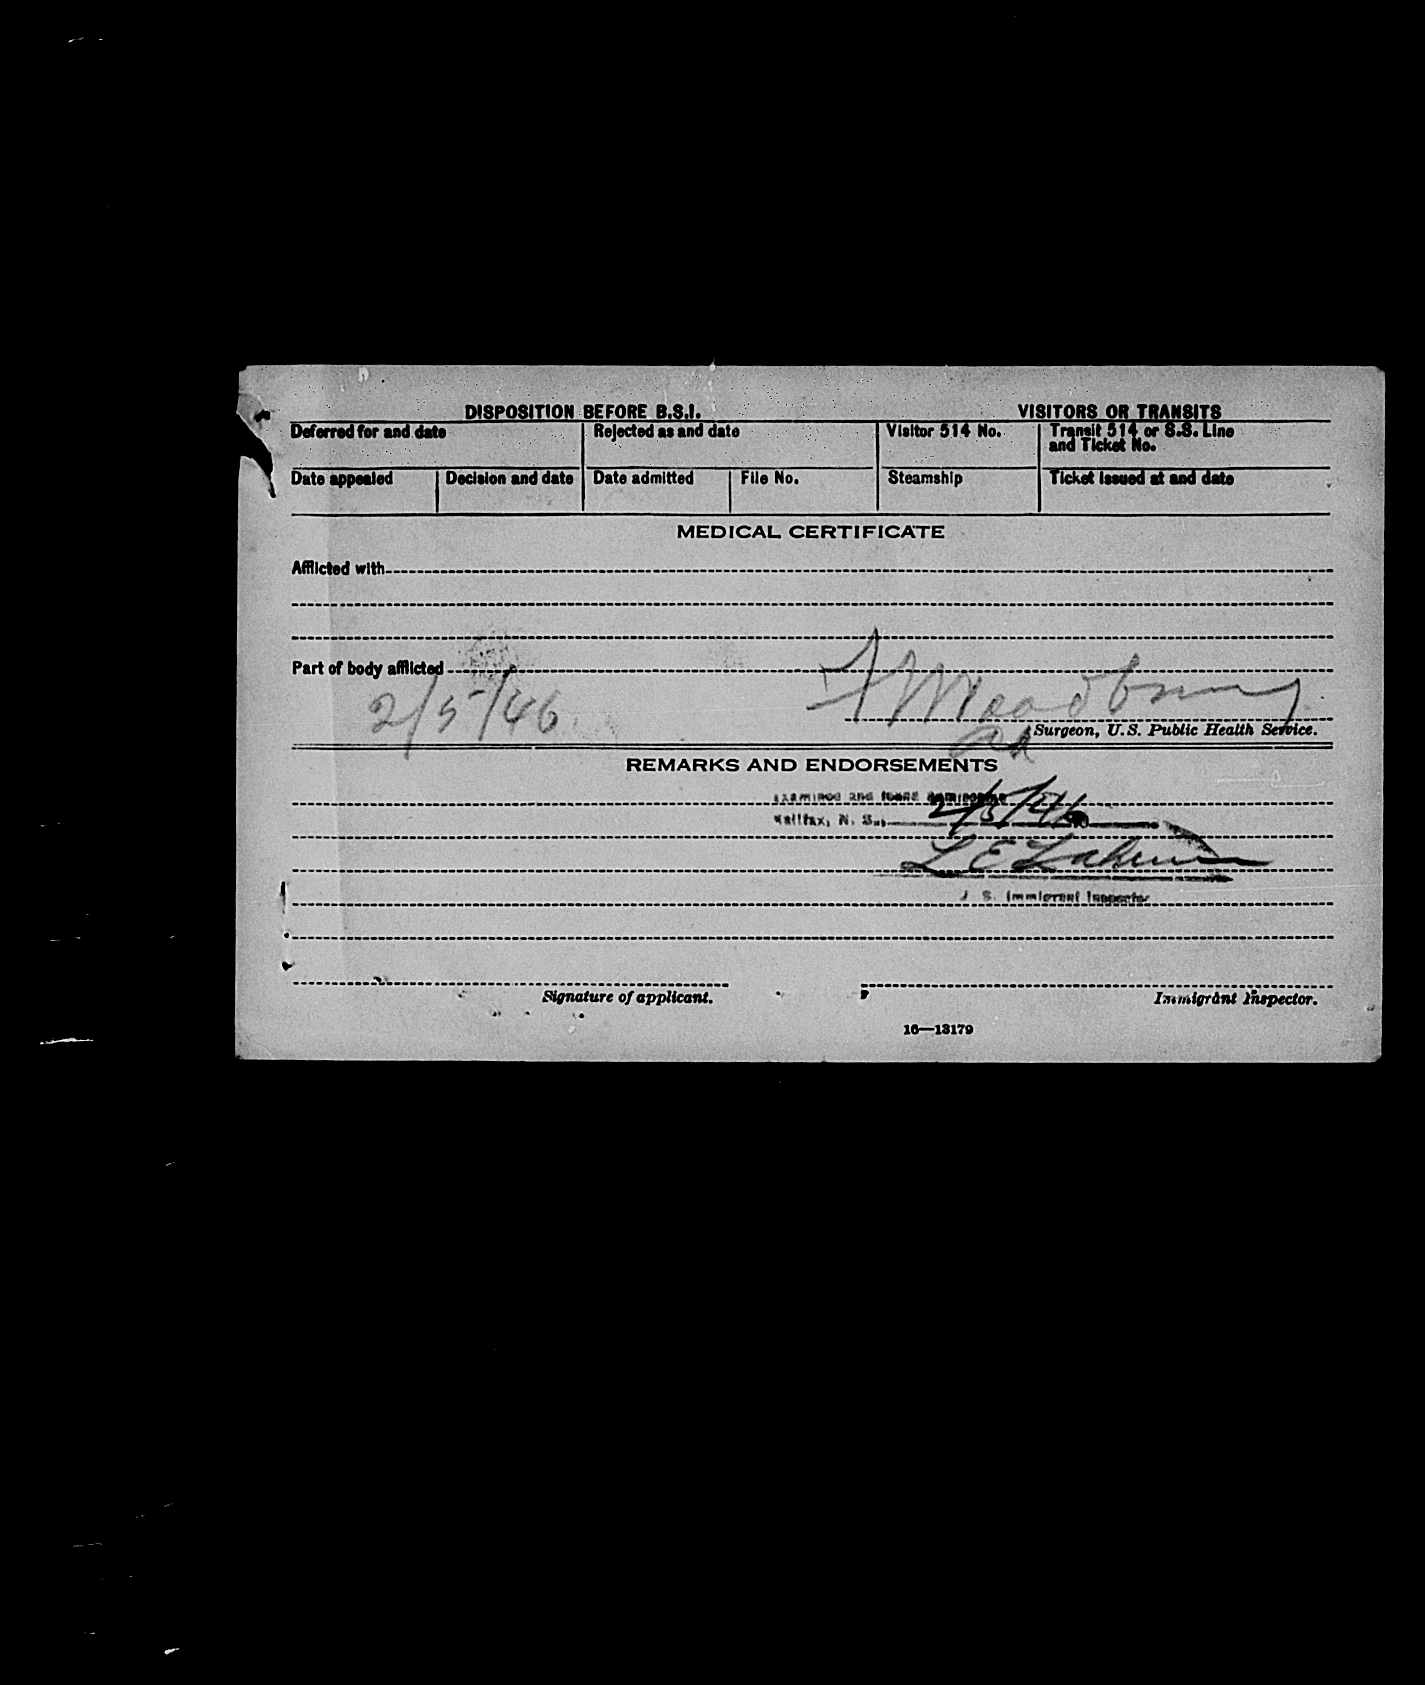 DISPOSITION BEFORE B.S.I. VISITORS OR TRANSITS
Deferred for and date Rejected as and date Visitor 514 No. Transit 514 or S.S. Line
and Ticket No.
Date appealed Decision and date Date admitted File No. Steamship Ticket issued at and date
MEDICAL CERTIFICATE
Afflicted with
Part of body afflicted
2/5/46
Surgeon, U.S. Public Health Service.
REMARKS AND ENDORSEMENTS
Examined and found
Halifax, N. S., 2/5/46
L E
U. S. Immigrant Inspector
Signature of applicant. Immigrant Inspector.
16—13179